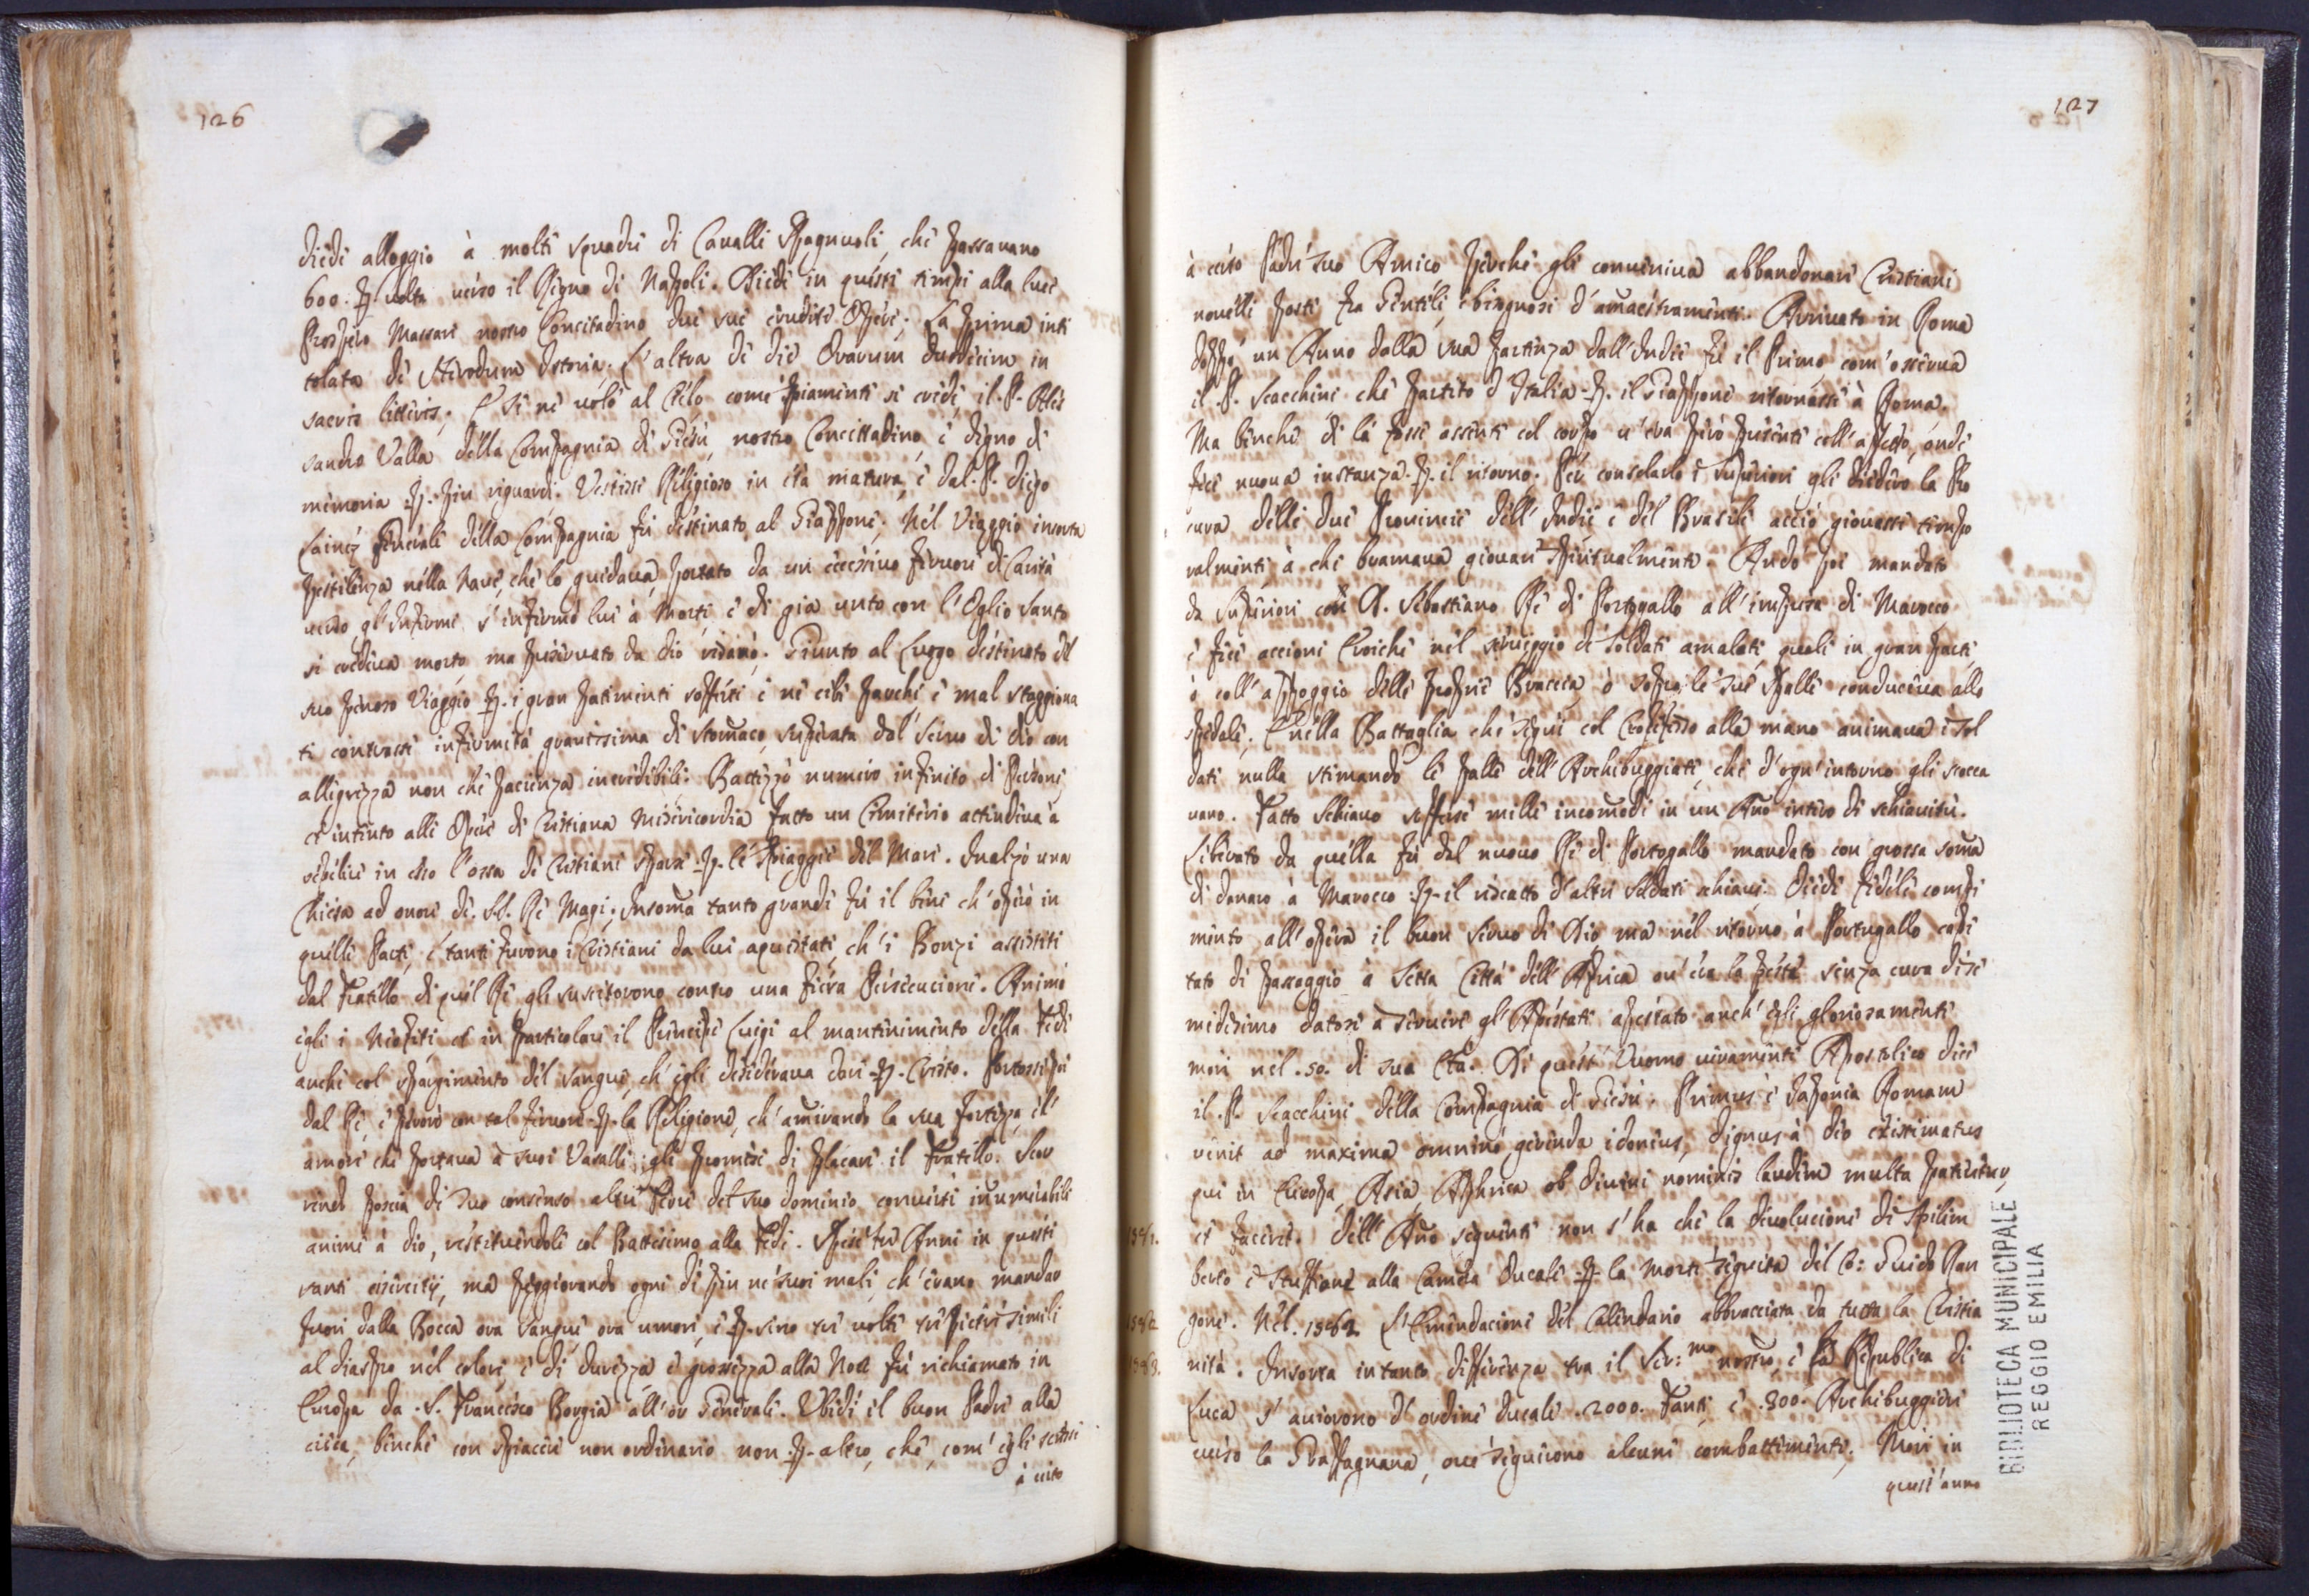 126
diede alloggio à molte squadre di Cavalli Spagnuoli, che passavano
600. p. volta verso il Regno di Napoli. Diede in questi tempi alla luce
Prospero Massari nostro Concitadino due sue erudite Opere; La prima inti
tolata di Istoria. L'altra de die duodecim in
sacris litteris; E se ne volò al Cielo come piamente si crede, il P. Ales
sandro Valla della Compagnia di Giesù, nostro Concittadino, è digno di
memoria p. piu riguardi. Vestissi Religioso in età matura, è dal P. Diego
Lainez Generale della Compagnia fù destinato al Giappone. Nel Viaggio insorta
pestilenza nella Nave, che lo guidava, portato da un eccessivo fervore di Carità
verso gl'Infermi s'infermò lui à Morte, è di gia unto con l'Oglio Santo
si credeva morto, ma preservato da Dio risanò. Giunto al Luogo destinato del
suo penoso Viaggio p. i gran patimenti sofferti è ne cibi parchi, è mal staggiona
ti contrasse infermità gravissima di stomaco, superata dal Servo di Dio con
allegrezza non che pacienza incredibile. Battezzò numero infinito di Persone,
et intento alle Opere di Cristiana Misericordia fatto un Cimiterio attendeva à
sepelire in esso l'ossa de Cristiani sparse p. le Spiaggie del Mare. Inalzò una
Chiesa ad onore de SS. Rè Magi; Insoma tanto grande fù il bene ch'operò in
quelle Parti, è tanti furono i Cristiani da lui aquistati, ch'i Bonzi assistiti
dal Fratello di quel Rè gli suscitorono contro una fiera Persecucione. Animò
egli i Neofiti, et in particolare il Principe Luigi al mantenimento della Fede
anche col spargimento del sangue, ch'egli desiderava dare p. Cristo. Portossi poi
dal Rè, è perorò con tal fervore p. la Religione, ch'amirando la sua fortezza, è l'
amore che portava à suoi Vasalli gli promise di placare il Fratello. Scor
rendo poscia di suo consenso altre Terre del suo dominio converti inumerabili
anime à Dio, restituendole col Battesimo alla Fede. Spese tre Anni in questi
santi esercitij, ma peggiorando ogni dì piu ne' suoi mali, ch'erano mandar
fuori dalla Bocca ora sangue, ora umori, è p. sino tre volte tre pietre simili
al diaspro nel colore, è di durezza è grossezza alla Noce fù richiamato in
Europa da S. Francesco Borgia all'or Generale. Ubidì il buon Padre alla
cieca, benche con spiacere non ordinario non p. altro, che, com'egli scrisse
à certo
127
à certo Padre suo Amico perche gli conveniva abbandonare Cristiani
novelli posti fra Gentili, è bisognosi d'amaestramenti. Arrivato in Roma
doppo un Anno dalla sua partenza dall'Indie fù il Primo com'osserva
il P. Scacchini che partito d'Italia p. il Giappone ritornasse à Roma.
Ma benche di là fosse assente col corpo v'era però presente coll'affetto, onde
fece nuova instanza p. il ritorno. Per consolarlo i Superiori gli diedero la Pro
cura delle due Provincie dell'Indie è del Brasile acciò giovasse tempo
ralmente à chi bramava giovare spiritualmente. Andò poi mandato
da Superiori con D. Sebastiano Rè di Portogallo all'impresa di Marocco,
è fece accioni Eroiche nel serviggio de Soldati amalati, quali in gran parte,
ò coll'appoggio delle proprie Braccia, ò sopra le sue Spalle conduceva allo
spedale. E nella Battaglia che seguì col Crocifisso alla mano animava i Sol
dati nulla stimando le palle dell'Archibuggiate, che d'ogn'intorno gli scocca
vano. Fatto Schiavo sofferse mille incomodi in un Ano intero di schiavitù.
Liberato da quella fù dal nuovo Rè di Portogallo mandato con grossa soma
di danaro à Marocco p. il riscatto d'altri Soldati schiavi. Diede fedele compi
mento all'opera il buon Servo di Dio ma nel ritorno à Portugallo capi
tato di passaggio à Setta Città dell'Africa ov'era la peste senza cura di se
medesimo datosi à servire gl'Apestati apestato anch'egli gloriosamente
morì nel 50. di sua Età. Di quest'Vuomo veramente Apostolico dice
il P. Scacchini della Compagnia di Giesù. Primus è Japonia Romam
venit ad maxima omnino gerenda idoneus, dignus à Dio existimatus
qui in Europa, Asia Aphrica ob divini nominis laudem multa pateretur,
1581. et faceret. Dell'Ano seguente non s'ha che la devolucione di Spilim
berto è alla Camera Ducale p. la Morte seguita del Co: Guido Ran
1582 goni. Nel. 1582. L'Emendacione del Calendario abbracciata da tutta la Cristia
1583. nità. Insorta intanto differenza tra il Ser:mo nostro, è la Republica di
Luca s'aviorono d'ordine Ducale .2000. Fanti, è .800. Archibuggieri
verso la Graffagnana, ove seguirono alcuni combattimenti. Morì in
quest'anno
BIBLIOTECA MUNICIPALE
REGGIO EMILIA